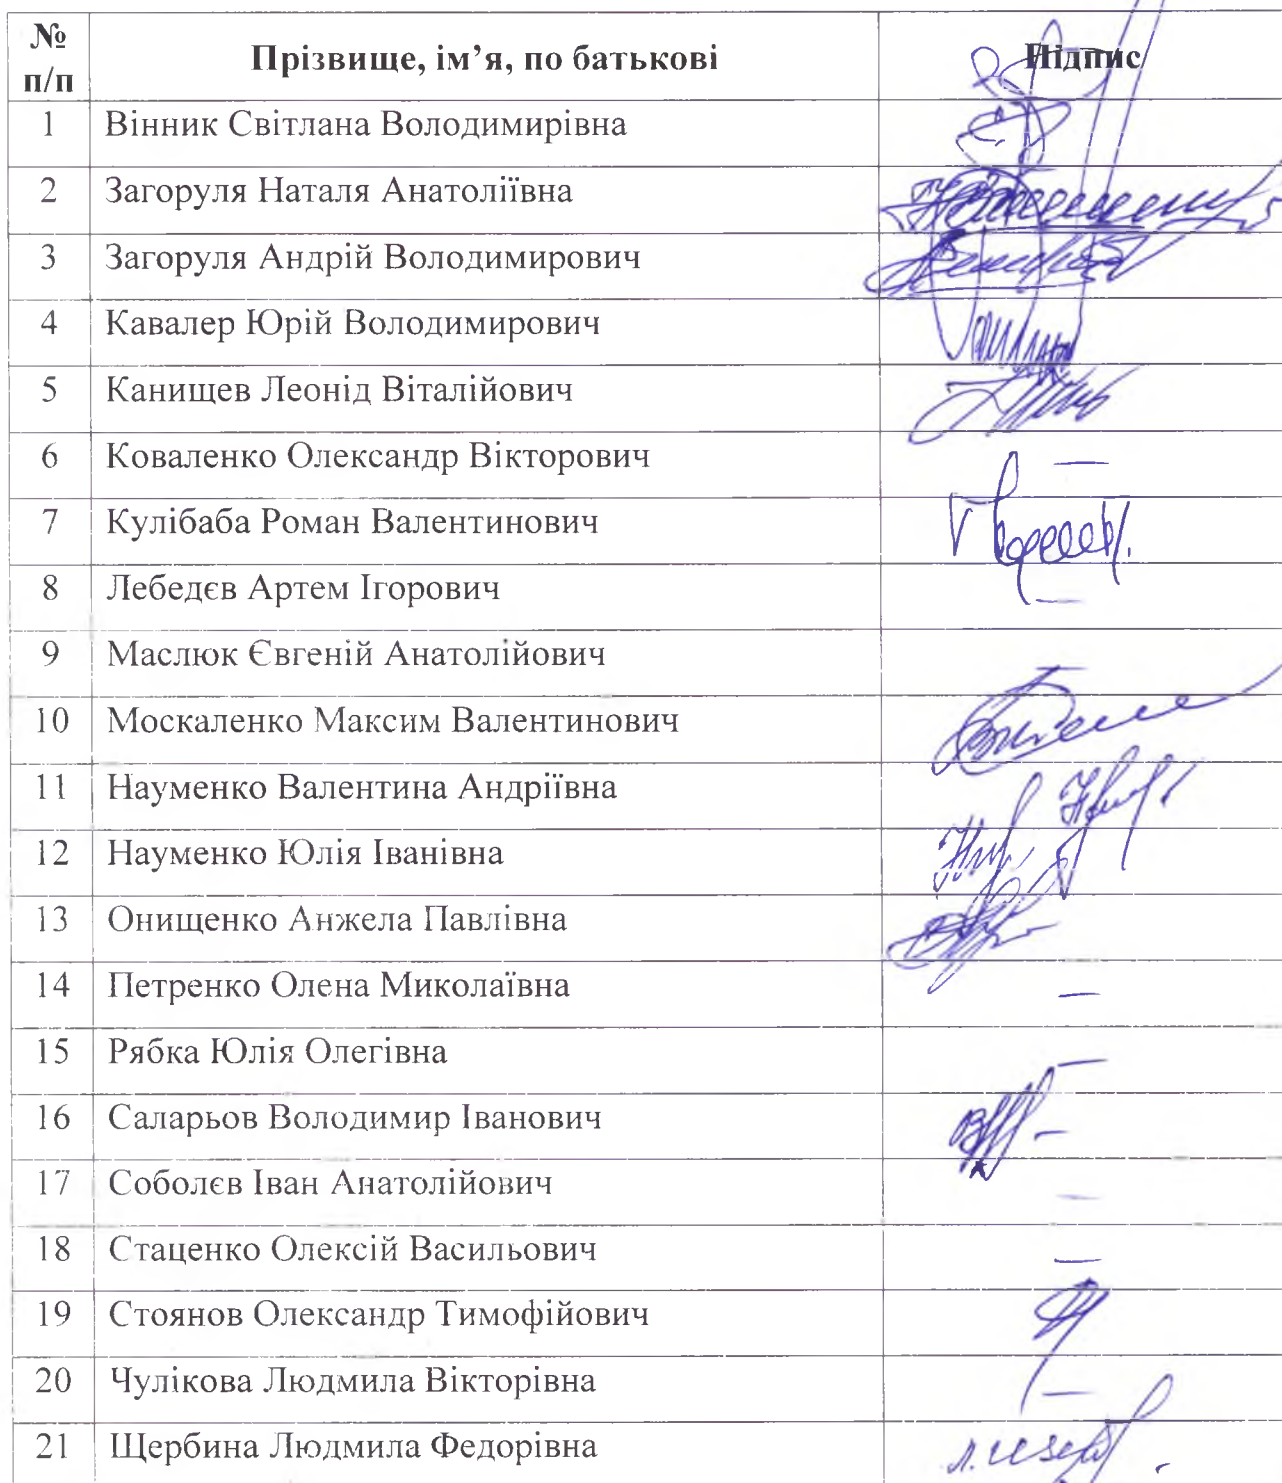 № п/п Прізвище, ім’я, по батькові Підпис
1 Вінник Світлана Володимирівна
2 Загоруля Наталя Анатоліївна
3 Загоруля Андрій Володимирович
4 Кавалер Юрій Володимирович
5 Канищев Леонід Віталійович
6 Коваленко Олександр Вікторович —
7 Кулібаба Роман Валентинович
8 Лебедєв Артем Ігорович —
9 Маслюк Євгеній Анатолійович
10 Москаленко Максим Валентинович
11 Науменко Валентина Андріївна
12 Науменко Юлія Іванівна
13 Онищенко Анжела Павлівна
14 Петренко Олена Миколаївна —
15 Рябка Юлія Олегівна —
16 Саларьов Володимир Іванович
17 Соболєв Іван Анатолійович —
18 Стаценко Олексій Васильович —
19 Стоянов Олександр Тимофійович
20 Чулікова Людмила Вікторівна —
21 Щербина Людмила Федорівна